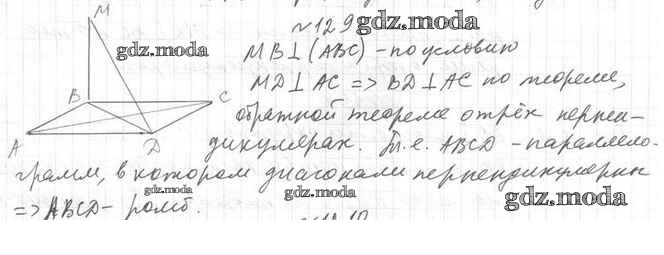 M
№ 129 gdz.moda
gdz.moda MB⊥(ABC) - по условию
MD⊥AC => BD⊥AC по теореме,
B C
обратной теореме о трёх перпен-
A D
дикулярах. Т.е. ABCD - параллело-
грамм, в котором диагонали перпендикулярны
gdz.moda gdz.moda gdz.moda
=> ABCD - ромб.